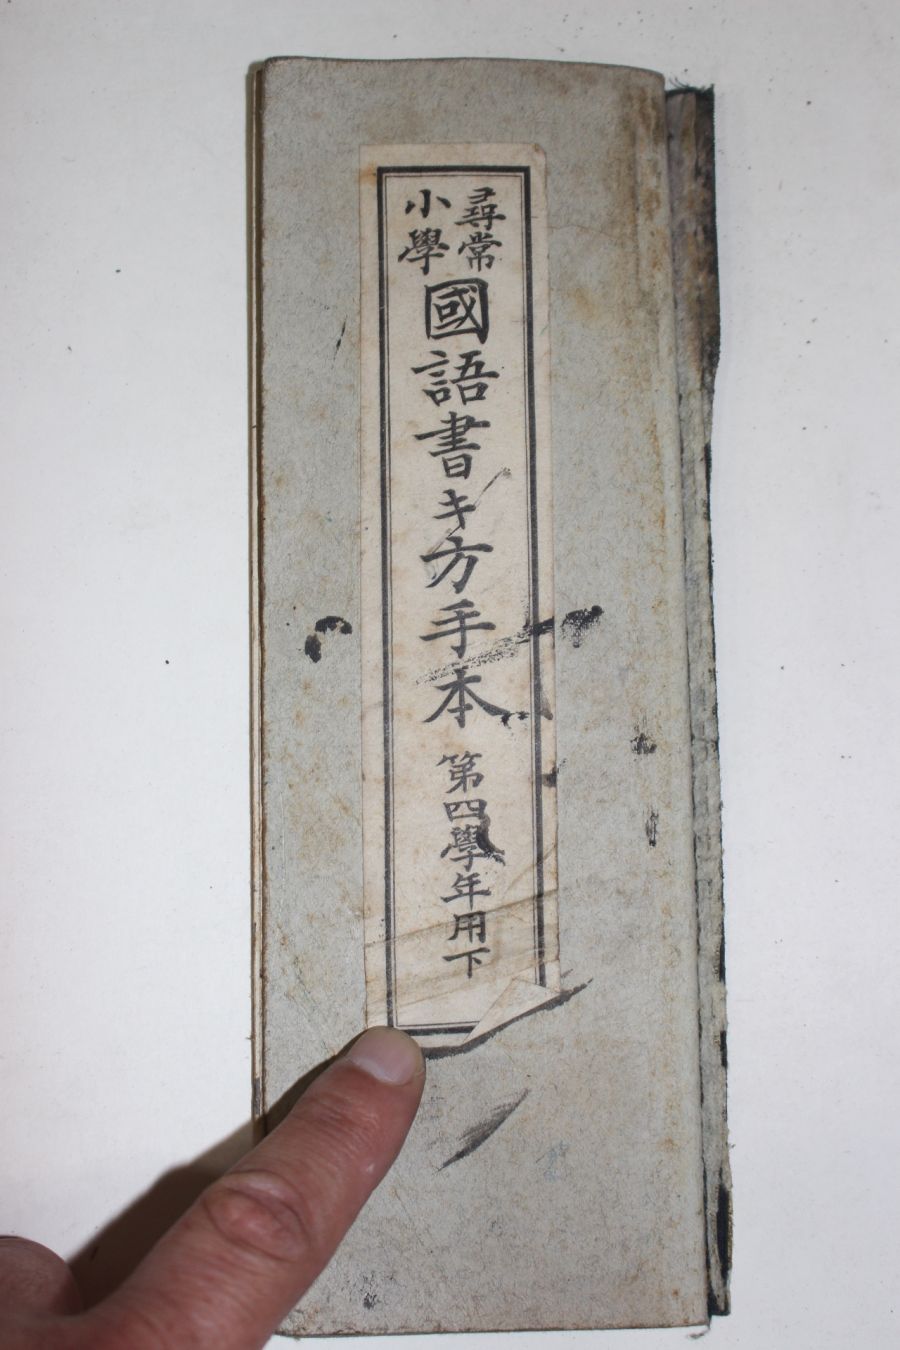 尋常
小學
國語書キ方手本
第四學年用下